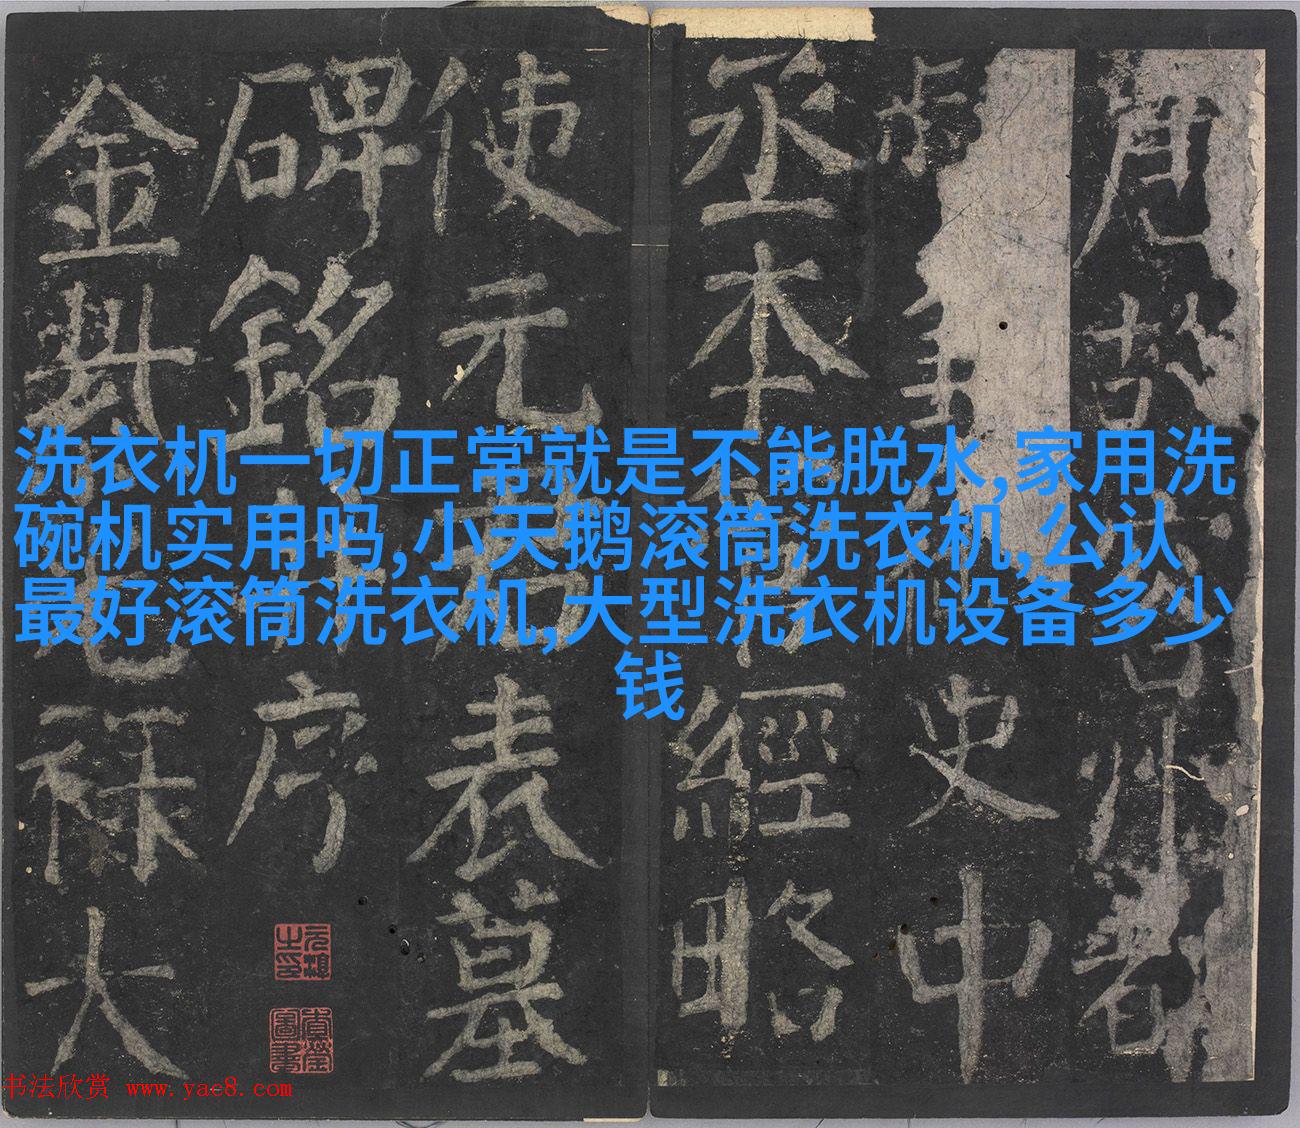 洗衣机一切正常就是不能脱水,家用洗
碗机实用吗,小天鹅滚筒洗衣机,公认
最好滚筒洗衣机,大型洗衣机设备多少
钱
故容州都
史中
丞本管經略
使元君表墓
碑銘并序
金紫光祿大
书法欣赏 www.yac8.com